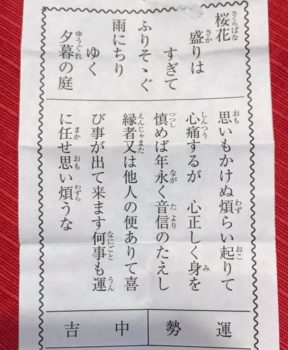 桜花
盛りは
すぎて
ふりそゝぐ
雨にちり
ゆく
夕暮の庭
思いもかけぬ煩らい起りて
心痛するが 心正しく身を
慎めば年永く音信のたえし
縁者又は他人の便ありて喜
び事が出て来ます何事も運
に任せ思い煩うな
運勢
中吉